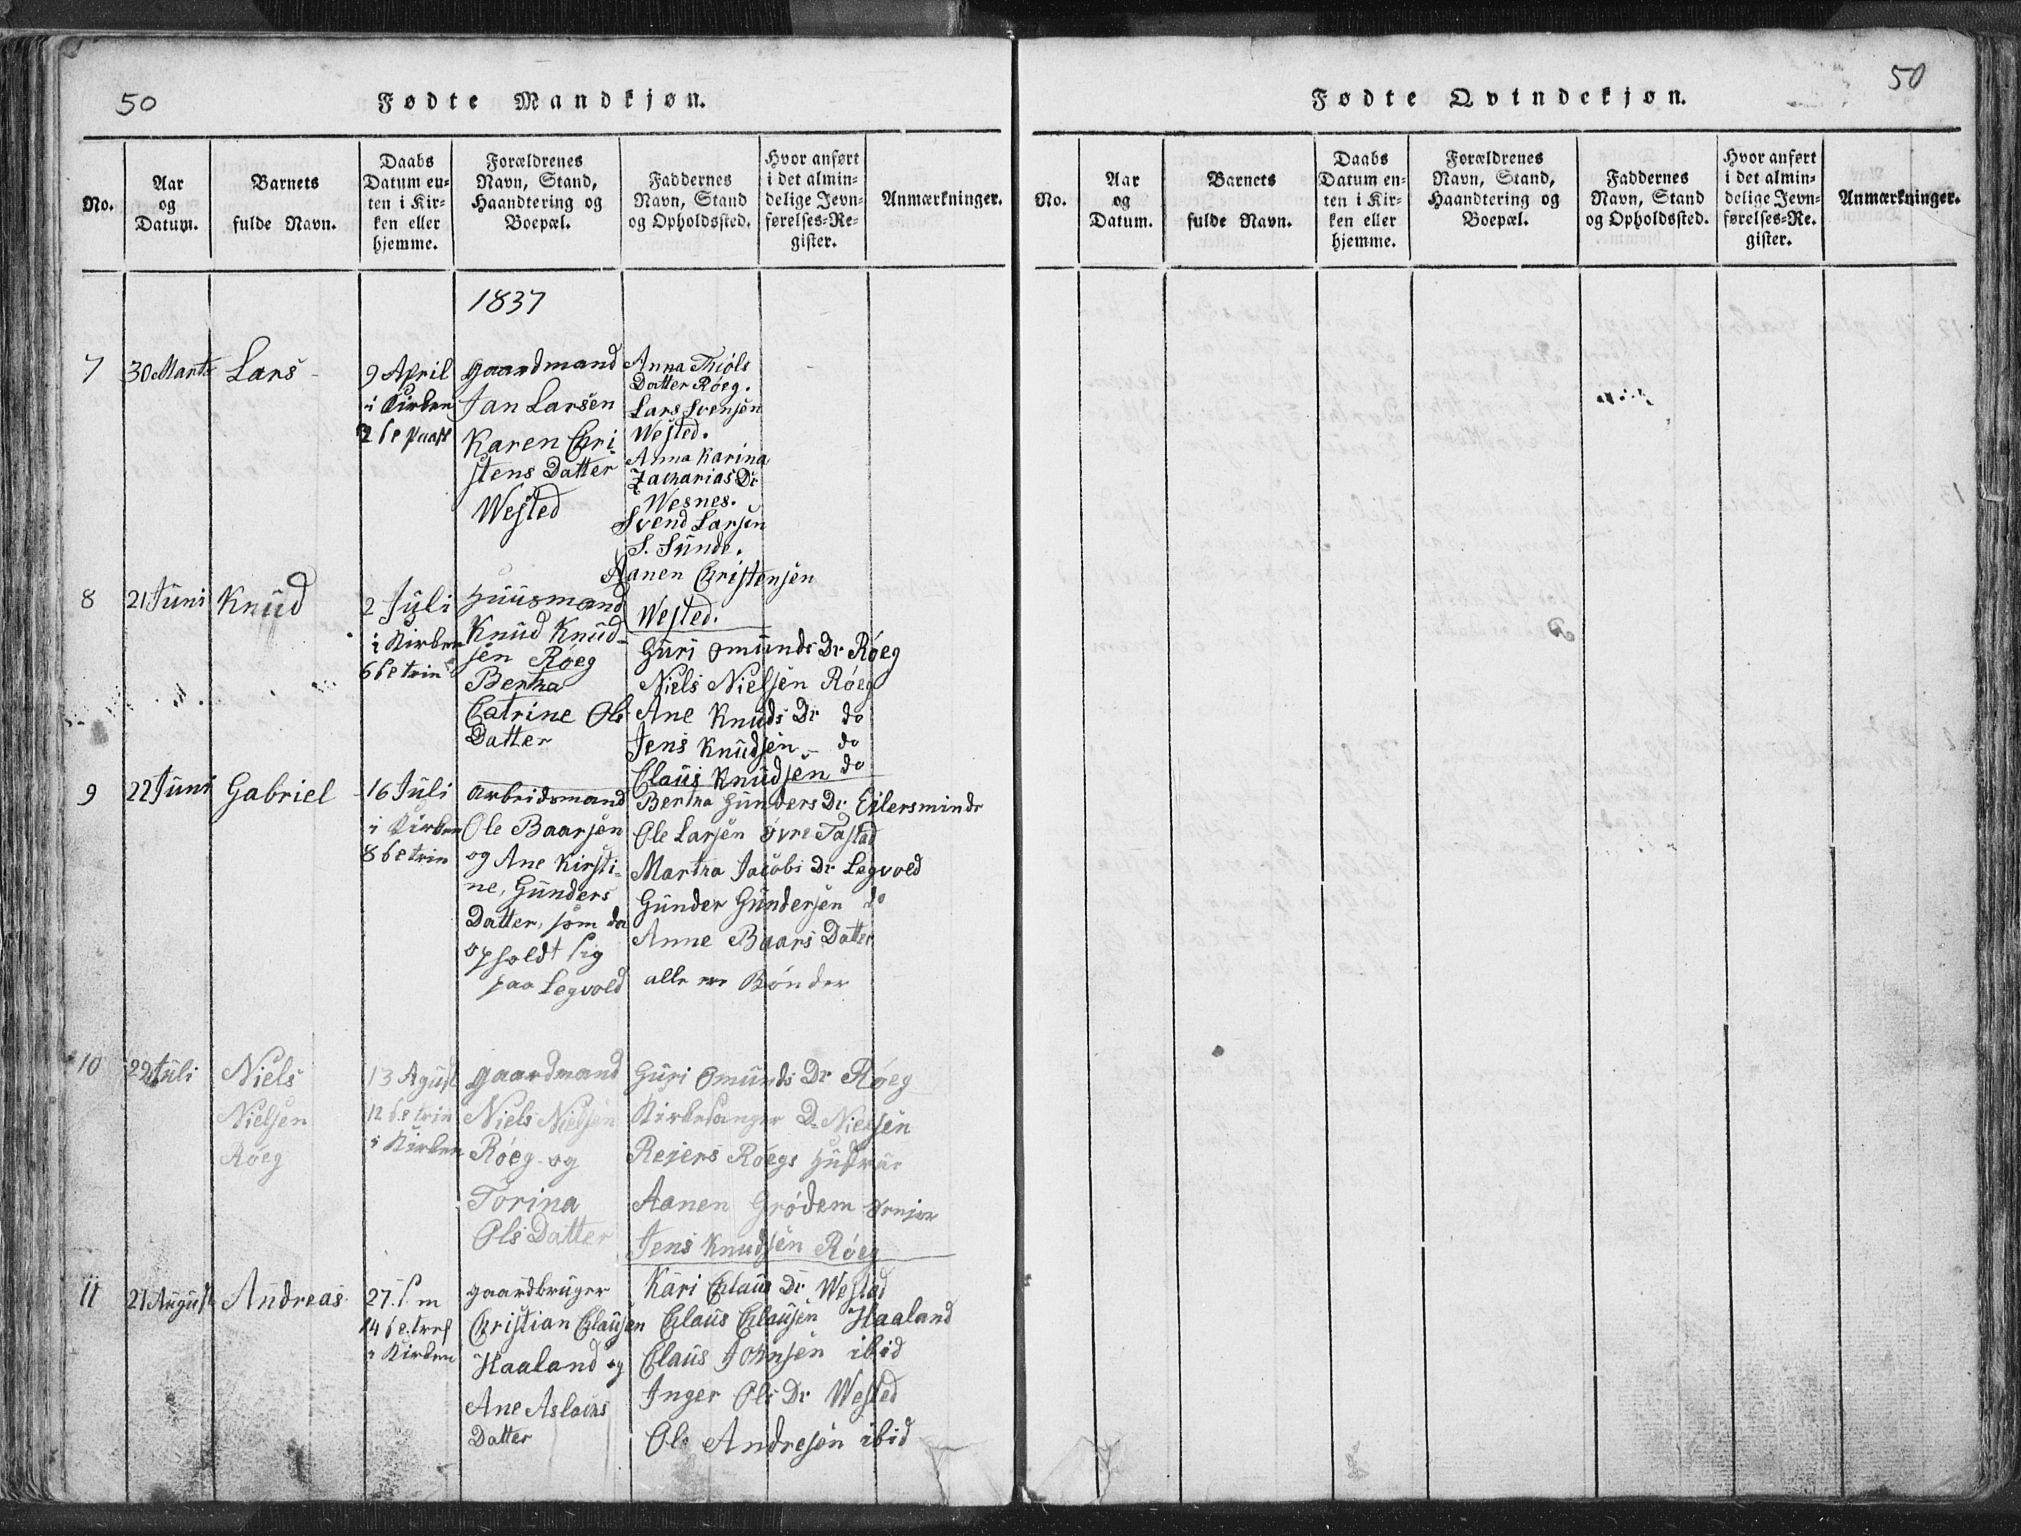 50
Fødte Mandkjøn.
No.
Aar
og
Datum.
Barnets
fulde Navn.
Daabs
Datum en-
ten i Kir-
ken eller
hjemme.
Forældrenes
Navn, Stand,
Haandtering og
Boepæl.
Faddernes
Navn, Stand
og Opholdssted.
Hvor anført
i det almin-
delige Jevn-
førelses-Re-
gister.
Anmærkninger.
1837
7
30 Marts
Lars
9 April
i Kirken
2 de paask
gaardmand
Jan Larsen
Karen Chri
stens Datter
Wested
Anna Thiøls
Datter Røeg.
Lars Svensen
Wested.
Anna Karina
Zacharias Dr
Wesnes.
Svend Larsen
S. Sunde.
Aanen Christensen
Wested.
8
21 Juni
Knud
2 Juli
i Kirken
6 te trin
Huusmand
Knud Knud-
sen Røeg
Bertha
Catrine Ols
Datter
Guri Omunds Dr Røeg
Niels Nielsen Røeg
Ane Knuds Dr do
Jens Knudsen - do
Claus Knudsen do
9
22 Juni
Gabriel
16 Juli
i Kirken
8 de trin
arbeidsmand
Ole Baarsen
og Ane Kirsti-
ne, Gunders
Datter, som da
opholdt sig
paa Legvold
Bertha Gunders Dr Eilersminde
Ole Larsen Øvre Tastad
Martha Jacobs Dr Legvold
Gunder Gundersen do
Anne Baars Datter
alle ere Bønder
10
22 Juli
Niels
Nielsen
Røeg
13 Agust
12 te trin
i Kirken
gaardmand
Niels Nielsen
Røeg og
Torina
Ols Datter
Guri Omunds Dr Røeg
Kirkesanger D. Nielsen
Rejers Røegs Hustrue
Aanen Grødem
Jens Knudsen Røeg
11
21 August
Andreas
27. s. m
14 de tref
i Kirken
gaardbruger
Christian Clausen
Haaland og
Ane Aslachs
Datter
Kari Claus Dr Westad
Claus Clausen Haaland
Claus Johnsen ibid
Inger Ols Dr Wested
Ole Andresen ibid
50
Fødte Qvindekjøn.
No.
Aar
og
Datum.
Barnets
fulde Navn.
Daabs
Datum en-
ten i Kir-
ken eller
hjemme.
Forældrenes
Navn, Stand,
Haandtering og
Boepæl.
Faddernes
Navn, Stand
og Opholdssted.
Hvor anført
i det almin-
delige Jevn-
førelses-Re-
gister.
Anmærkninger.